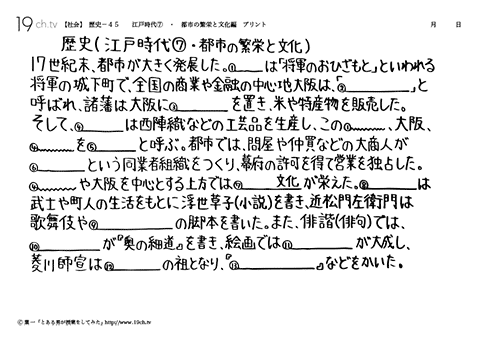 19ch.tv 【社会】 歴史－45 江戸時代⑦ ・ 都市の繁栄と文化編 プリント 月 日
歴史(江戸時代⑦・都市の繁栄と文化)
17世紀末、都市が大きく発展した。①____は「将軍のおひざもと」といわれる
将軍の城下町で、全国の商業や金融の中心地大阪は、「②____」と
呼ばれ、諸藩は大阪に③____を置き、米や特産物を販売した。
そして、④____は西陣織などの工芸品を生産し、この①____、大阪、
④____を⑤____と呼ぶ。都市では、問屋や仲買などの大商人が
⑥____という同業者組織をつくり、幕府の許可を得て営業を独占した。
④____や大阪を中心とする上方では⑦____文化が栄えた。⑧____は
武士や町人の生活をもとに浮世草子(小説)を書き、近松門左衛門は
歌舞伎や⑨____の脚本を書いた。また、俳諧(俳句)では、
⑩____が『奥の細道』を書き、絵画では⑪____が大成し、
菱川師宣は⑫____の祖となり、『⑬____』などをかいた。
Ⓒ 葉一「とある男が授業をしてみた」http://www.19ch.tv